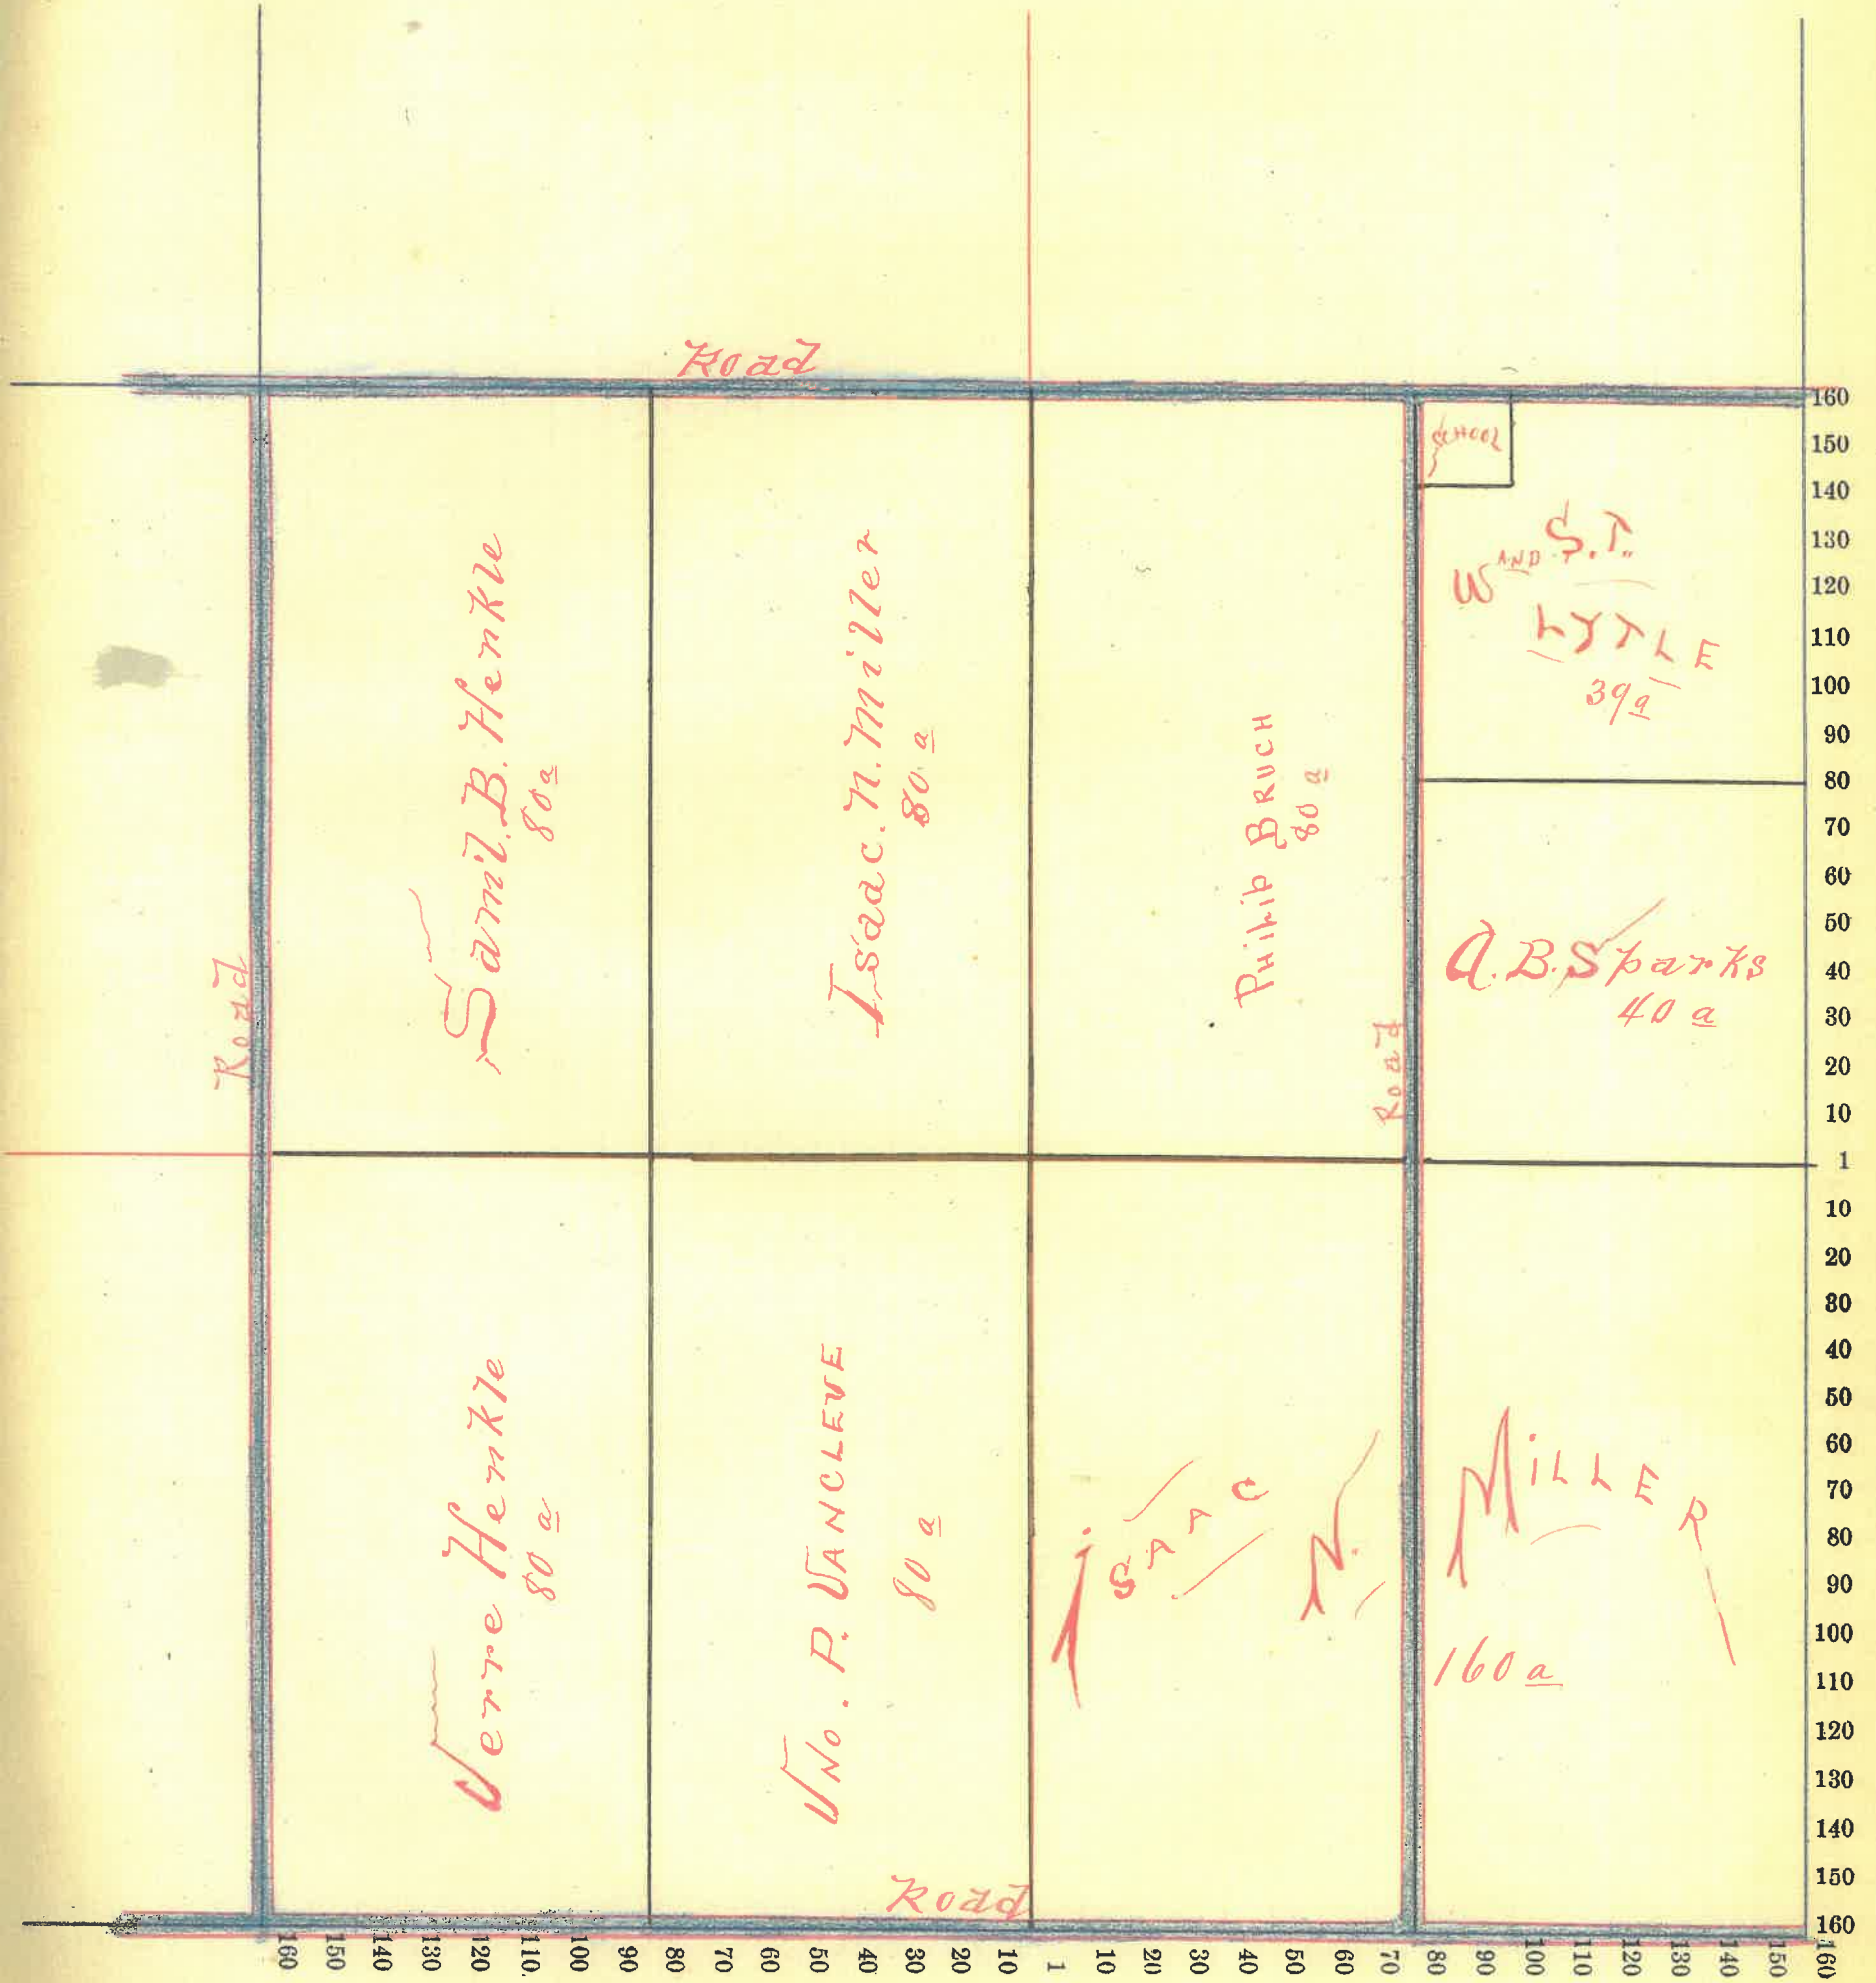 Road
SCHOOL
W AND S.T.
LYTLE
39 a
Sam'l. B. Henkle
80 a
Isaac. N. Miller
80 a
PHILIP BRUCH
80 a
A. B. Sparks
40 a
Road
Road
Verre Henkle
80 a
JNO. P. VANCLEVE
80 a
iSAAC N. MiLLER
160 a
Road
160
150
140
130
120
110
100
90
80
70
60
50
40
30
20
10
1
10
20
30
40
50
60
70
80
90
100
110
120
130
140
150
160
160 150 140 130 120 110 100 90 80 70 60 50 40 30 20 10 1 10 20 30 40 50 60 70 80 90 100 110 120 130 140 150 160